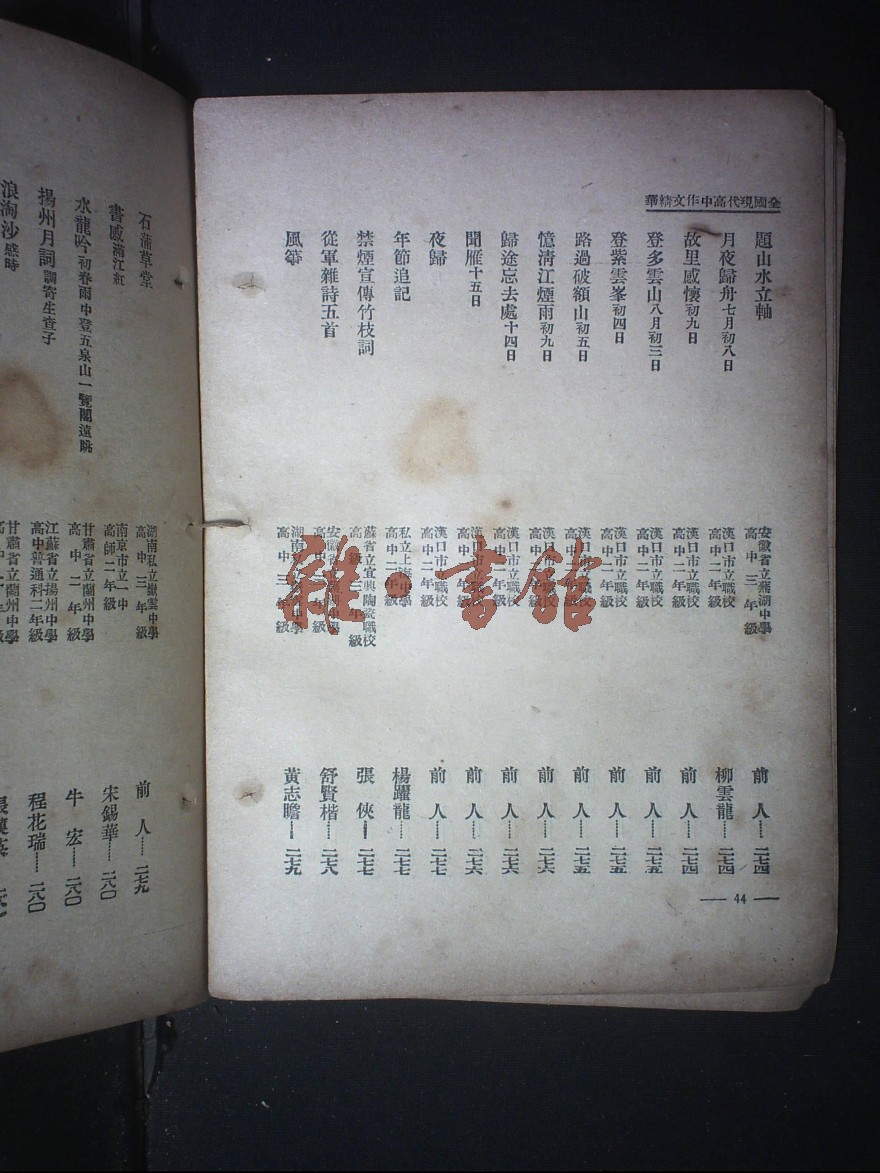 全國現代高中作文精華
題山水立軸 安徽省立蕪湖中學高中三年級 前人……二七四
月夜歸舟七月初八日 漢口市立職校高中二年級 柳雲龍……二七四
故里感懷初九日 漢口市立職校高中二年級 前人……二七四
登多雲山八月初三日 漢口市立職校高中二年級 前人……二七五
登紫雲峯初四日 漢口市立職校高中二年級 前人……二七五
路過破額山初五日 漢口市立職校高中二年級 前人……二七五
憶清江煙雨初九日 漢口市立職校高中二年級 前人……二七六
歸途忘去處十四日 漢口市立職校高中二年級 前人……二七六
聞雁十五日 漢口市立職校高中二年級 前人……二七六
夜歸 漢口市立職校高中二年級 前人……二七七
年節追記 私立上海中學高中二年級 楊躍龍……二七七
禁煙宣傳竹枝詞 蘇省立宜興陶瓷職校高級三年級 張俠……二七七
從軍雜詩五首 安徽省立 高中 年級 舒賢楷……二七八
風箏 湖南 中學高中三年級 黃志瞻……二七九
— 44 —
石蒲草堂 湖南私立嶽雲中學高中三年級 前人……二七九
書感滿江紅 南京市立一中高師二年級 宋錫華……二八〇
水龍吟初春雨中登五泉山一覽閣遠眺 甘肅省立蘭州中學高中二年級 牛宏……二八〇
揚州月詞調寄生查子 江蘇省立揚州中學高中普通科二年級 程花瑞……二八〇
浪淘沙感時 甘肅省立蘭州中學
雜·書館